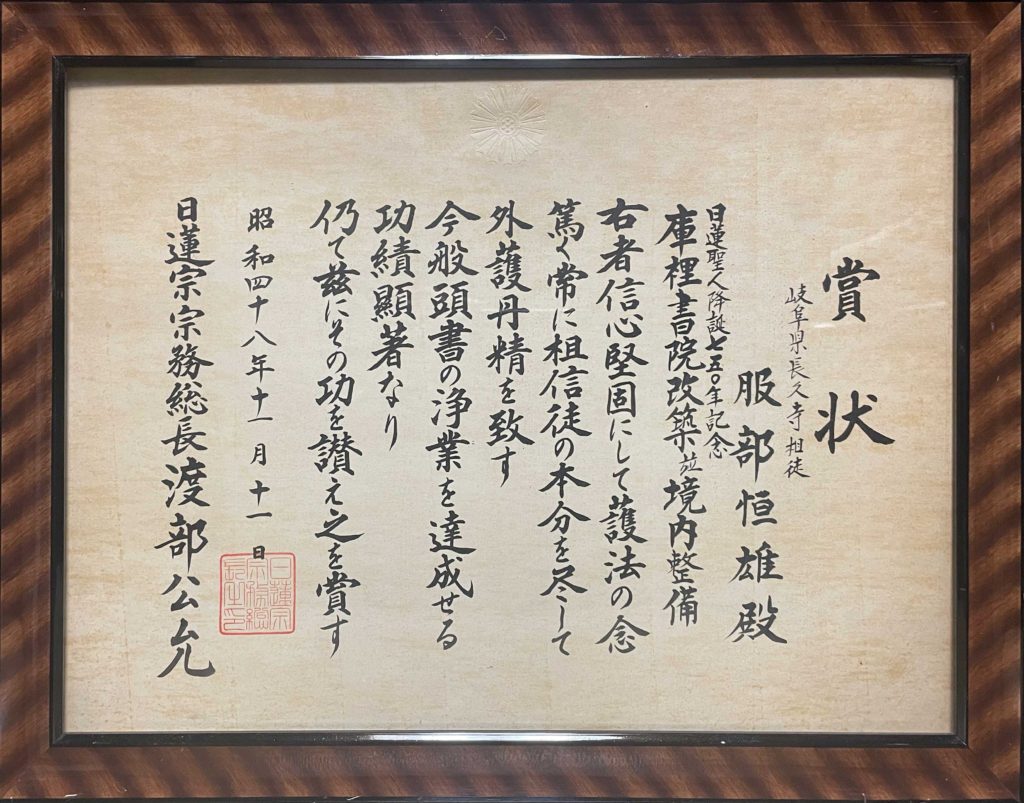 賞状
岐阜県長久寺檀徒
服部恒雄殿
日蓮聖人降誕七五〇年記念
庫裡書院改築並境内整備
右者信心堅固にして護法の念
篤く常に祖信徒の本分を尽して
外護丹精を致す
今般頭書の浄業を達成せる
功績顕著なり
仍て茲にその功を讃え之を賞す
昭和四十八年十一月十一日
日蓮宗宗務総長渡部公允
日蓮宗
宗務総
長之印